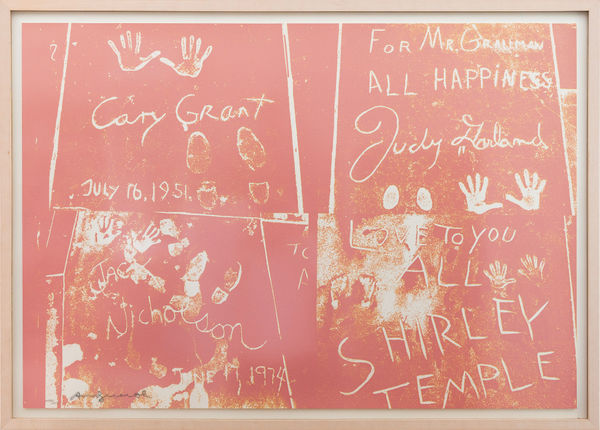 Cary Grant
JULY 16.1951.
JACK
Nicholson
JUNE 17, 1974
FOR MR. GRAUMAN
ALL HAPPINESS
Judy Garland
LOVE TO YOU
ALL
SHIRLEY
TEMPLE